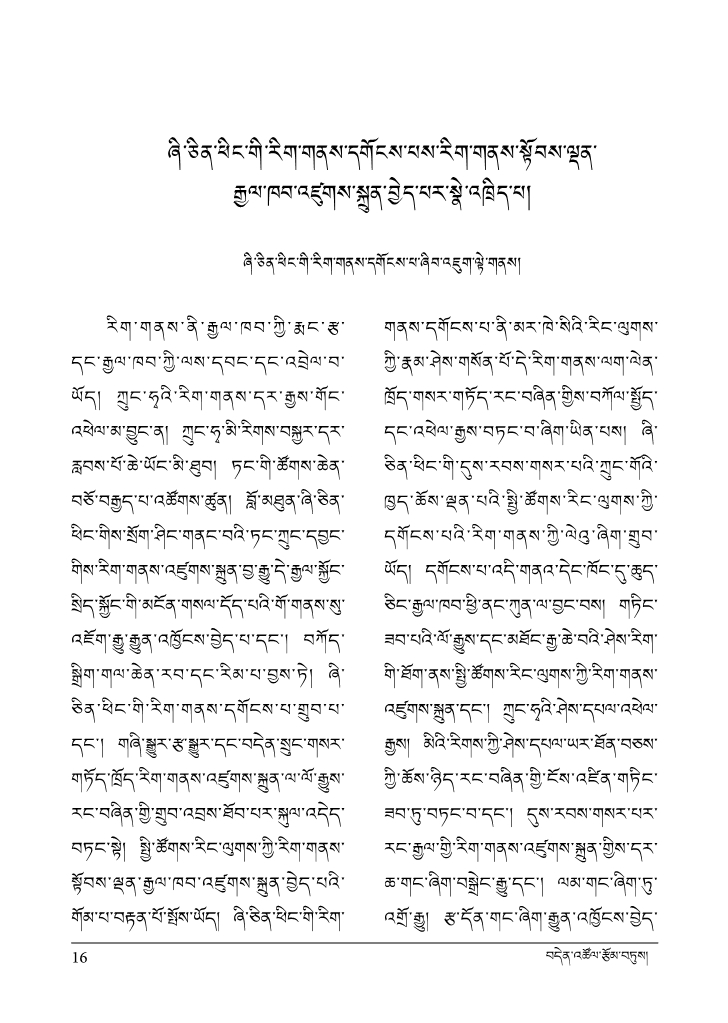 ཞི་ཅིན་ཕིང་གི་རིག་གནས་དགོངས་པས་རིག་གནས་སྟོབས་ལྡན་
རྒྱལ་ཁབ་འཛུགས་སྐྲུན་བྱེད་པར་སྣེ་འཁྲིད་པ།
ཞི་ཅིན་ཕིང་གི་རིག་གནས་དགོངས་པ་ཞིབ་འཇུག་ལྟེ་གནས།
རིག་གནས་ནི་རྒྱལ་ཁབ་ཀྱི་རྨང་རྩ་
དང་རྒྱལ་ཁབ་ཀྱི་ལས་དབང་དང་འབྲེལ་བ་
ཡོད། ཀྲུང་ཧྭའི་རིག་གནས་དར་རྒྱས་གོང་
འཕེལ་མ་བྱུང་ན། ཀྲུང་ཧྭ་མི་རིགས་བསྐྱར་དར་
རླབས་པོ་ཆེ་ཡོང་མི་ཐུབ། ཏང་གི་ཚོགས་ཆེན་
བཅོ་བརྒྱད་པ་འཚོགས་ཚུན། བློ་མཐུན་ཞི་ཅིན་
ཕིང་གིས་སྲོག་ཤིང་གནང་བའི་ཏང་ཀྲུང་དབྱང་
གིས་རིག་གནས་འཛུགས་སྐྲུན་བྱ་རྒྱུ་དེ་རྒྱལ་སྐྱོང་
སྲིད་སྐྱོང་གི་མངོན་གསལ་དོད་པའི་གོ་གནས་སུ་
འཇོག་རྒྱུ་རྒྱུན་འཁྱོངས་བྱེད་པ་དང་། བཀོད་
སྒྲིག་གལ་ཆེན་རབ་དང་རིམ་པ་བྱས་ཏེ། ཞི་
ཅིན་ཕིང་གི་རིག་གནས་དགོངས་པ་གྲུབ་པ་
དང་། གཞི་སྒྱུར་རྩ་སྒྱུར་དང་བདེན་སྲུང་གསར་
གཏོད་ཁྲོད་རིག་གནས་འཛུགས་སྐྲུན་ལ་ལོ་རྒྱུས་
རང་བཞིན་གྱི་གྲུབ་འབྲས་ཐོབ་པར་སྐུལ་འདེད་
བཏང་སྟེ། སྤྱི་ཚོགས་རིང་ལུགས་ཀྱི་རིག་གནས་
སྟོབས་ལྡན་རྒྱལ་ཁབ་འཛུགས་སྐྲུན་བྱེད་པའི་
གོམ་པ་བརྟན་པོ་སྤོས་ཡོད། ཞི་ཅིན་ཕིང་གི་རིག་
གནས་དགོངས་པ་ནི་མར་ཁེ་སིའི་རིང་ལུགས་
ཀྱི་རྣམ་ཤེས་གསོན་པོ་དེ་རིག་གནས་ལག་ལེན་
ཁྲོད་གསར་གཏོད་རང་བཞིན་གྱིས་བཀོལ་སྤྱོད་
དང་འཕེལ་རྒྱས་བཏང་བ་ཞིག་ཡིན་པས། ཞི་
ཅིན་ཕིང་གི་དུས་རབས་གསར་པའི་ཀྲུང་གོའི་
ཁྱད་ཆོས་ལྡན་པའི་སྤྱི་ཚོགས་རིང་ལུགས་ཀྱི་
དགོངས་པའི་རིག་གནས་ཀྱི་ལེའུ་ཞིག་གྲུབ་
ཡོད། དགོངས་པ་འདི་གནའ་དེང་ཁོང་དུ་ཆུད་
ཅིང་རྒྱལ་ཁབ་ཕྱི་ནང་ཀུན་ལ་བྱང་བས། གཏིང་
ཟབ་པའི་ལོ་རྒྱུས་དང་མཐོང་རྒྱ་ཆེ་བའི་ཤེས་རིག་
གི་ཐོག་ནས་སྤྱི་ཚོགས་རིང་ལུགས་ཀྱི་རིག་གནས་
འཛུགས་སྐྲུན་དང་། ཀྲུང་ཧྭའི་ཤེས་དཔལ་འཕེལ་
རྒྱས། མིའི་རིགས་ཀྱི་ཤེས་དཔལ་ཡར་ཐོན་བཅས་
ཀྱི་ཆོས་ཉིད་རང་བཞིན་གྱི་ངོས་འཛིན་གཏིང་
ཟབ་ཏུ་བཏང་བ་དང་། དུས་རབས་གསར་པར་
རང་རྒྱལ་གྱི་རིག་གནས་འཛུགས་སྐྲུན་གྱིས་དར་
ཆ་གང་ཞིག་བསྒྲེང་རྒྱུ་དང་། ལམ་གང་ཞིག་ཏུ་
འགྲོ་རྒྱུ། རྩ་དོན་གང་ཞིག་རྒྱུན་འཁྱོངས་བྱེད་
16
བདེན་འཚོལ་རྩོམ་བཏུས།